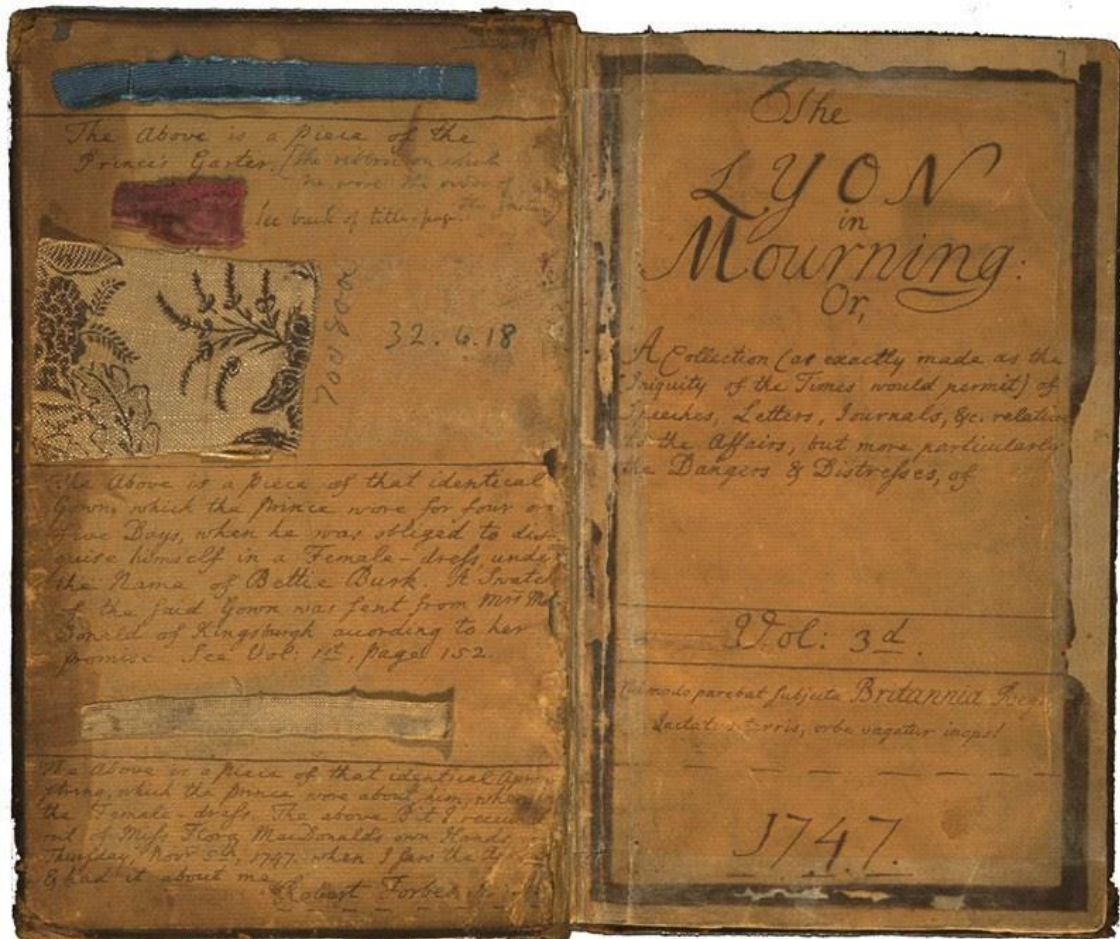 The Above is a piece of the
Prince's Garter. (the ribbon on which
he wore the order of
the Garter)
See back of title-page.
32.6.18
The Above is a piece of that identical
Gown, which the Prince wore for four or
five Days, when he was obliged to dis-
guise himself in a Female-dress, under
the Name of Bettie Burk. A Swatch
of the said Gown was sent from Mrs Mac
Donald of Kingsburgh according to her
promise. See Vol: 1st, page 152.
The above is a piece of that identical Apron
string, which the Prince wore about him, when
the Female-dress. The above Bit I received
out of Miss Flora MacDonald's own Hands
Thursday, Novr 5th, 1747. when I saw the Apron
& had it about me.
Robert Forbes
The
LYON
in
Mourning:
Or,
A Collection (as exactly made as the
Iniquity of the Times would permit) of
Speeches, Letters, Journals, &c. relative
to the Affairs, but more particularly
the Dangers & Distresses, of
Vol: 3d.
modo parebat subjecta Britannia Regi
Jactatur terris, orbe vagatur inops!
1747.